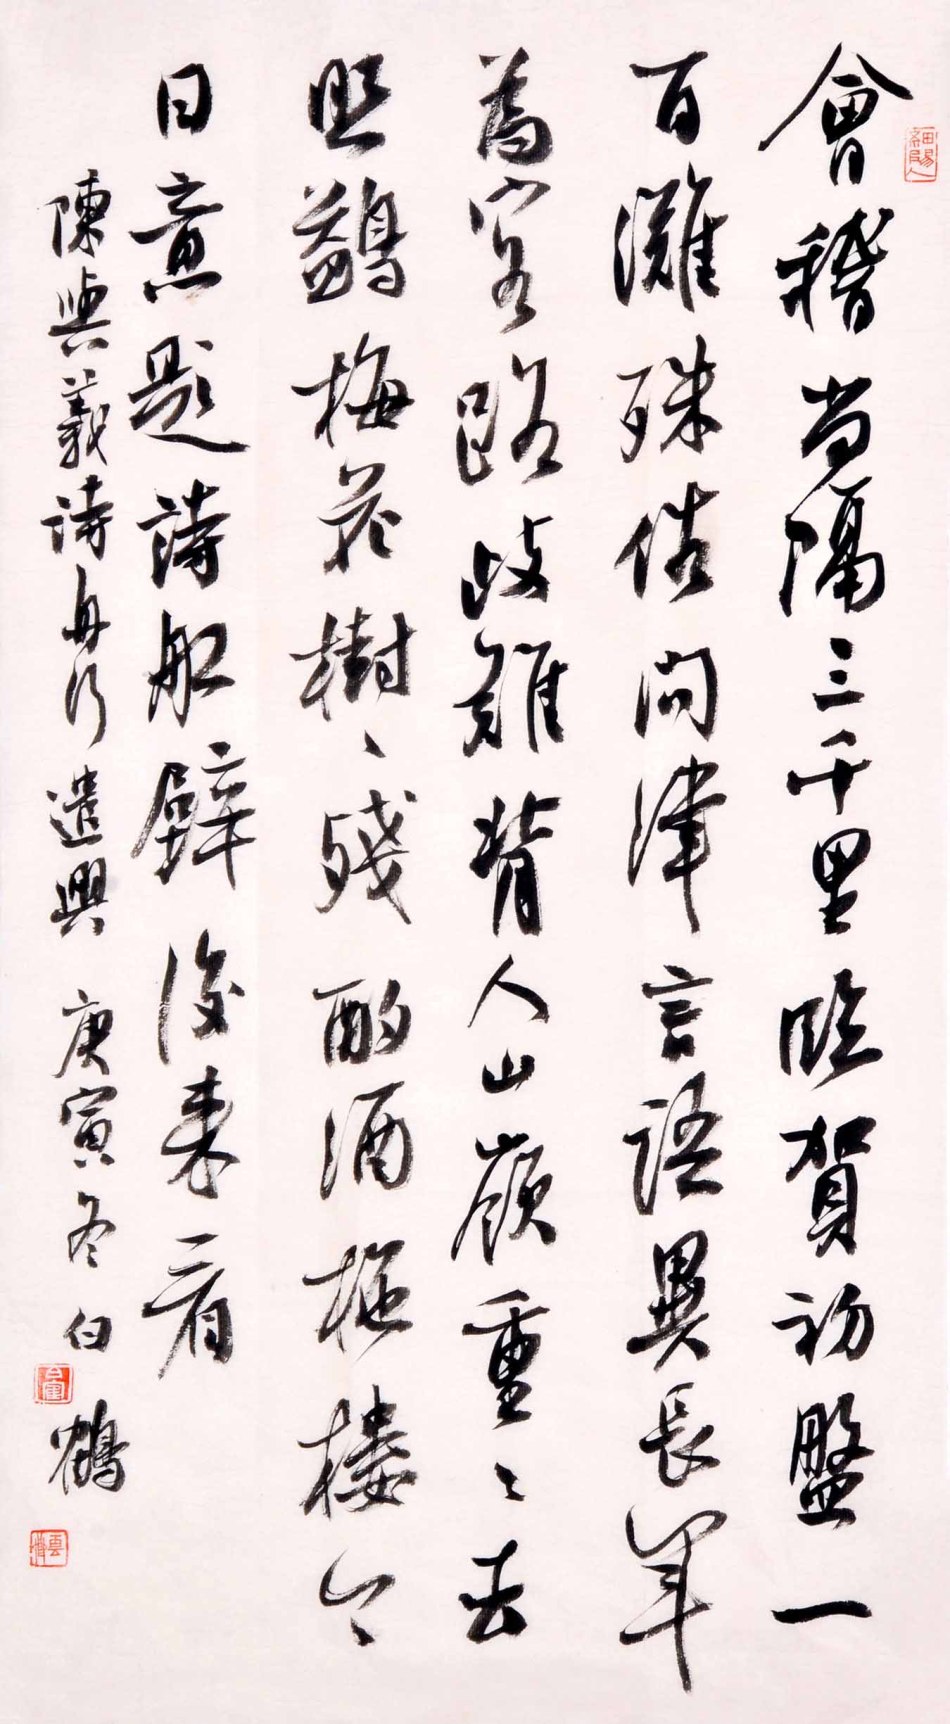 會稽尚隔三千里臨賀初盤一
百灘殊俗問津言語異長年
為客路歧難背人山嶺重〻去
照鷁梅花樹〻殘酌酒柂樓今
日意題詩船壁後来看
陳與義詩舟行遣興 庚寅冬 白鶴